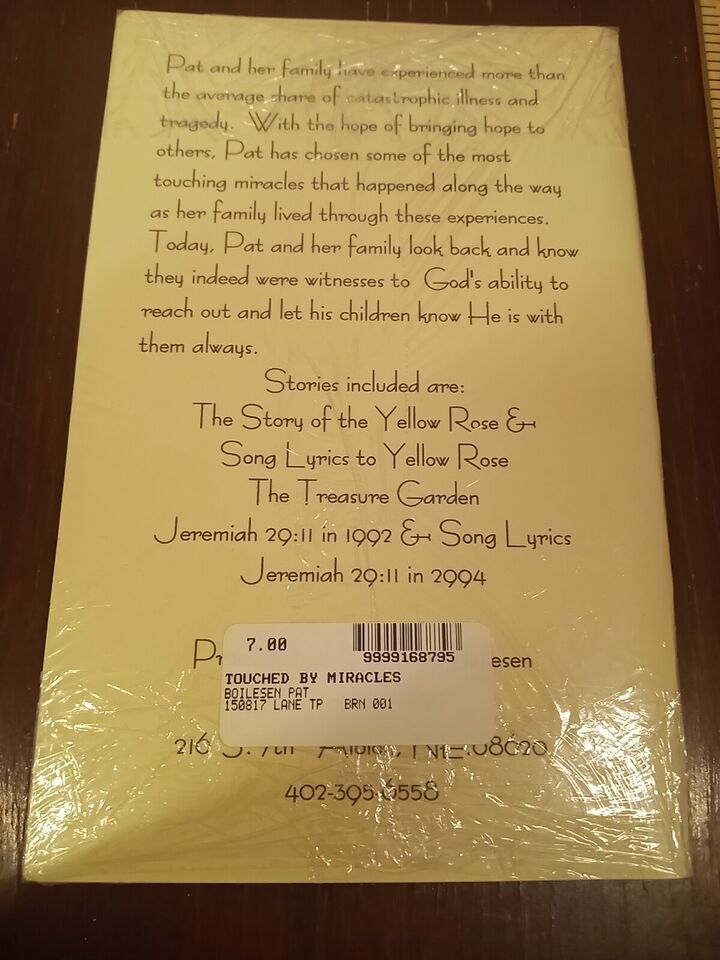 Pat and her family have experienced more than
the average share of catastrophic illness and
tragedy. With the hope of bringing hope to
others, Pat has chosen some of the most
touching miracles that happened along the way
as her family lived through these experiences.
Today, Pat and her family look back and know
they indeed were witnesses to God's ability to
reach out and let his children know He is with
them always.
Stories included are:
The Story of the Yellow Rose &
Song Lyrics to Yellow Rose
The Treasure Garden
Jeremiah 29:11 in 1992 & Song Lyrics
Jeremiah 29:11 in 2994
7.00
9999168795
TOUCHED BY MIRACLES
BOILESEN PAT
150817 LANE TP BRN 001
216 S. 7th
402-395-6558